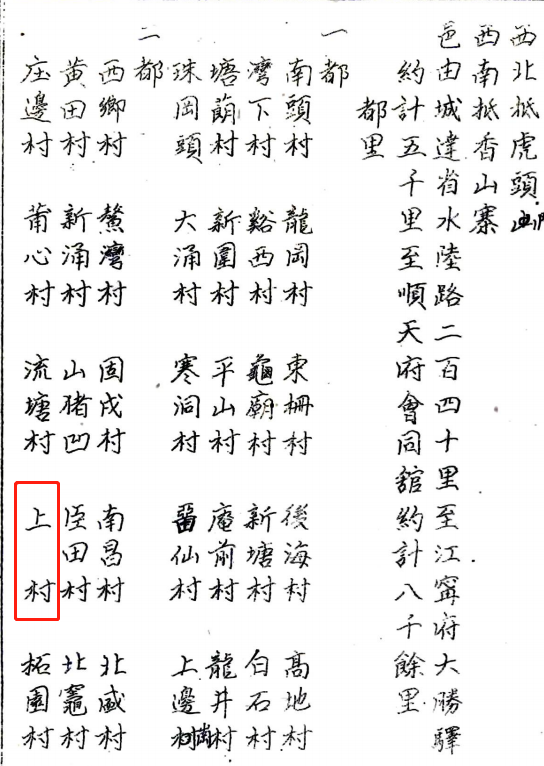 西北抵虎頭
西南抵香山寨
邑由城達省水陸路二百四十里至江寧府大勝驛
約計五千里至順天府會同館約計八千餘里
都里
一都
南頭村 龍岡村 東柵村 後海村 高地村
灣下村 谿西村 龜廟村 新塘村 白石村
塘蓢村 新圍村 平山村 庵前村 龍井村
珠岡頭 大涌村 寒洞村 畱仙村 上邊村
二都
西鄉村 鰲灣村 固戍村 南昌村 北咸村
黃田村 新涌村 山猪凹 臣田村 北竈村
庄邊村 莆心村 流塘村 上 村 拓園村